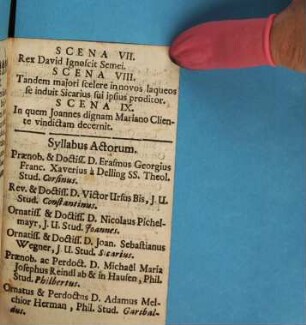 SCENA VII.
Rex David Ignoscit Semei.
SCENA VIII.
Tandem majori scelere in novos laqueos
se induit Sicarius sui ipsius proditor.
SCENA IX.
In quem Joannes dignam Mariano Clien-
te vindictam decernit.
Syllabus Actorum.
Prænob. & Doctiss. D. Erasmus Georgius
Franc. Xaverius à Delling SS. Theol.
Stud. Corsinus.
Rev. & Doctiss. D. Victor Ursin Bis, J. U.
Stud. Constantinus.
Ornatiss. & Doctiss. D. Nicolaus Pichel-
mayr, J. U. Stud. Joannes.
Ornatiss. & Doctiss. D. Joan. Sebastianus
Wegner, J. U. Stud. Sicarius.
Prænob. ac Perdoct. D. Michaël Maria
Josephus Reindl ab & in Hausen, Phil.
Stud. Philbertus.
Ornatus & Perdoctus D. Adamus Mel-
chior Herman, Phil. Stud. Garibal-
dus.